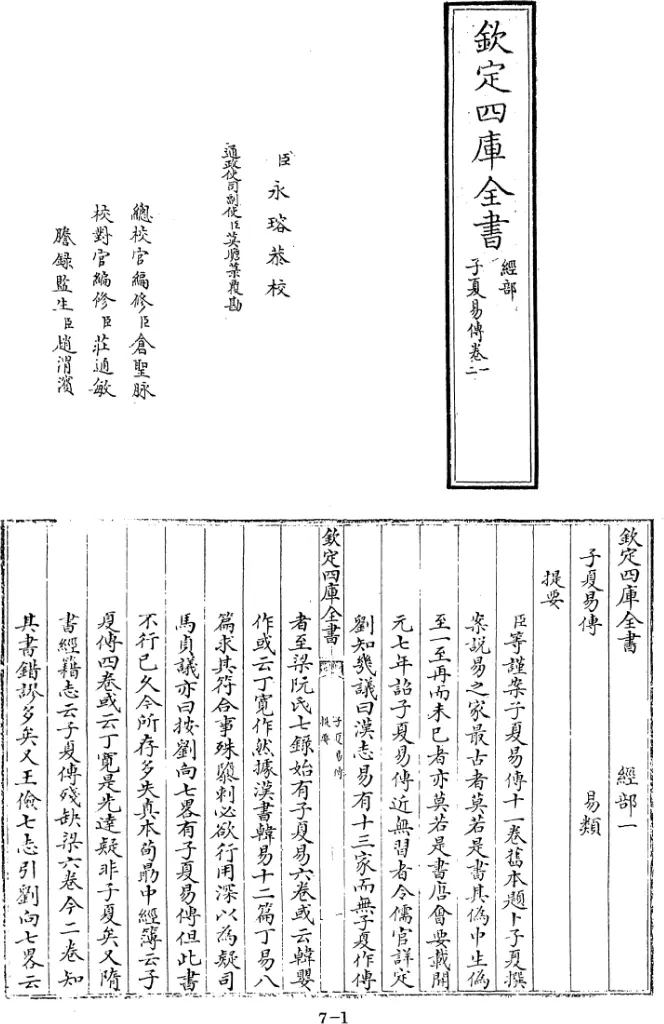 欽定四庫全書
經部
子夏易傳卷一二
臣永瑢恭校
通政使司副使臣莫瞻菉覆勘
總校官編修臣倉聖脉
校對官編修臣莊通敏
謄錄監生臣趙渭濱
欽定四庫全書 經部一
子夏易傳 易類
提要
臣等謹案子夏易傳十一卷舊本題卜子夏撰
案說易之家最古者莫若是書其偽中生偽
至一至再而未已者亦莫若是書唐會要載開
元七年詔子夏易傳近無習者令儒官詳定
劉知幾議曰漢志易有十三家而無子夏作傳
欽定四庫全書
子夏易傳
提要
一
者至梁阮氏七錄始有子夏易六卷或云韓嬰
作或云丁寬作然據漢書韓易十二篇丁易八
篇求其符合事殊隳刺必欲行用深以為疑司
馬貞議亦曰按劉向七畧有子夏易傳但此書
不行已久今所存多失真本荀勗中經簿云子
夏傳四卷或云丁寬是先達疑非子夏矣又隋
書經籍志云子夏傳殘缺梁六卷今二卷知
其書錯謬多矣又王儉七志引劉向七畧云
7-1